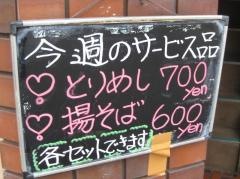 今週のサービス品
♡とりめし 700yen
♡揚そば 600yen
各セットできます